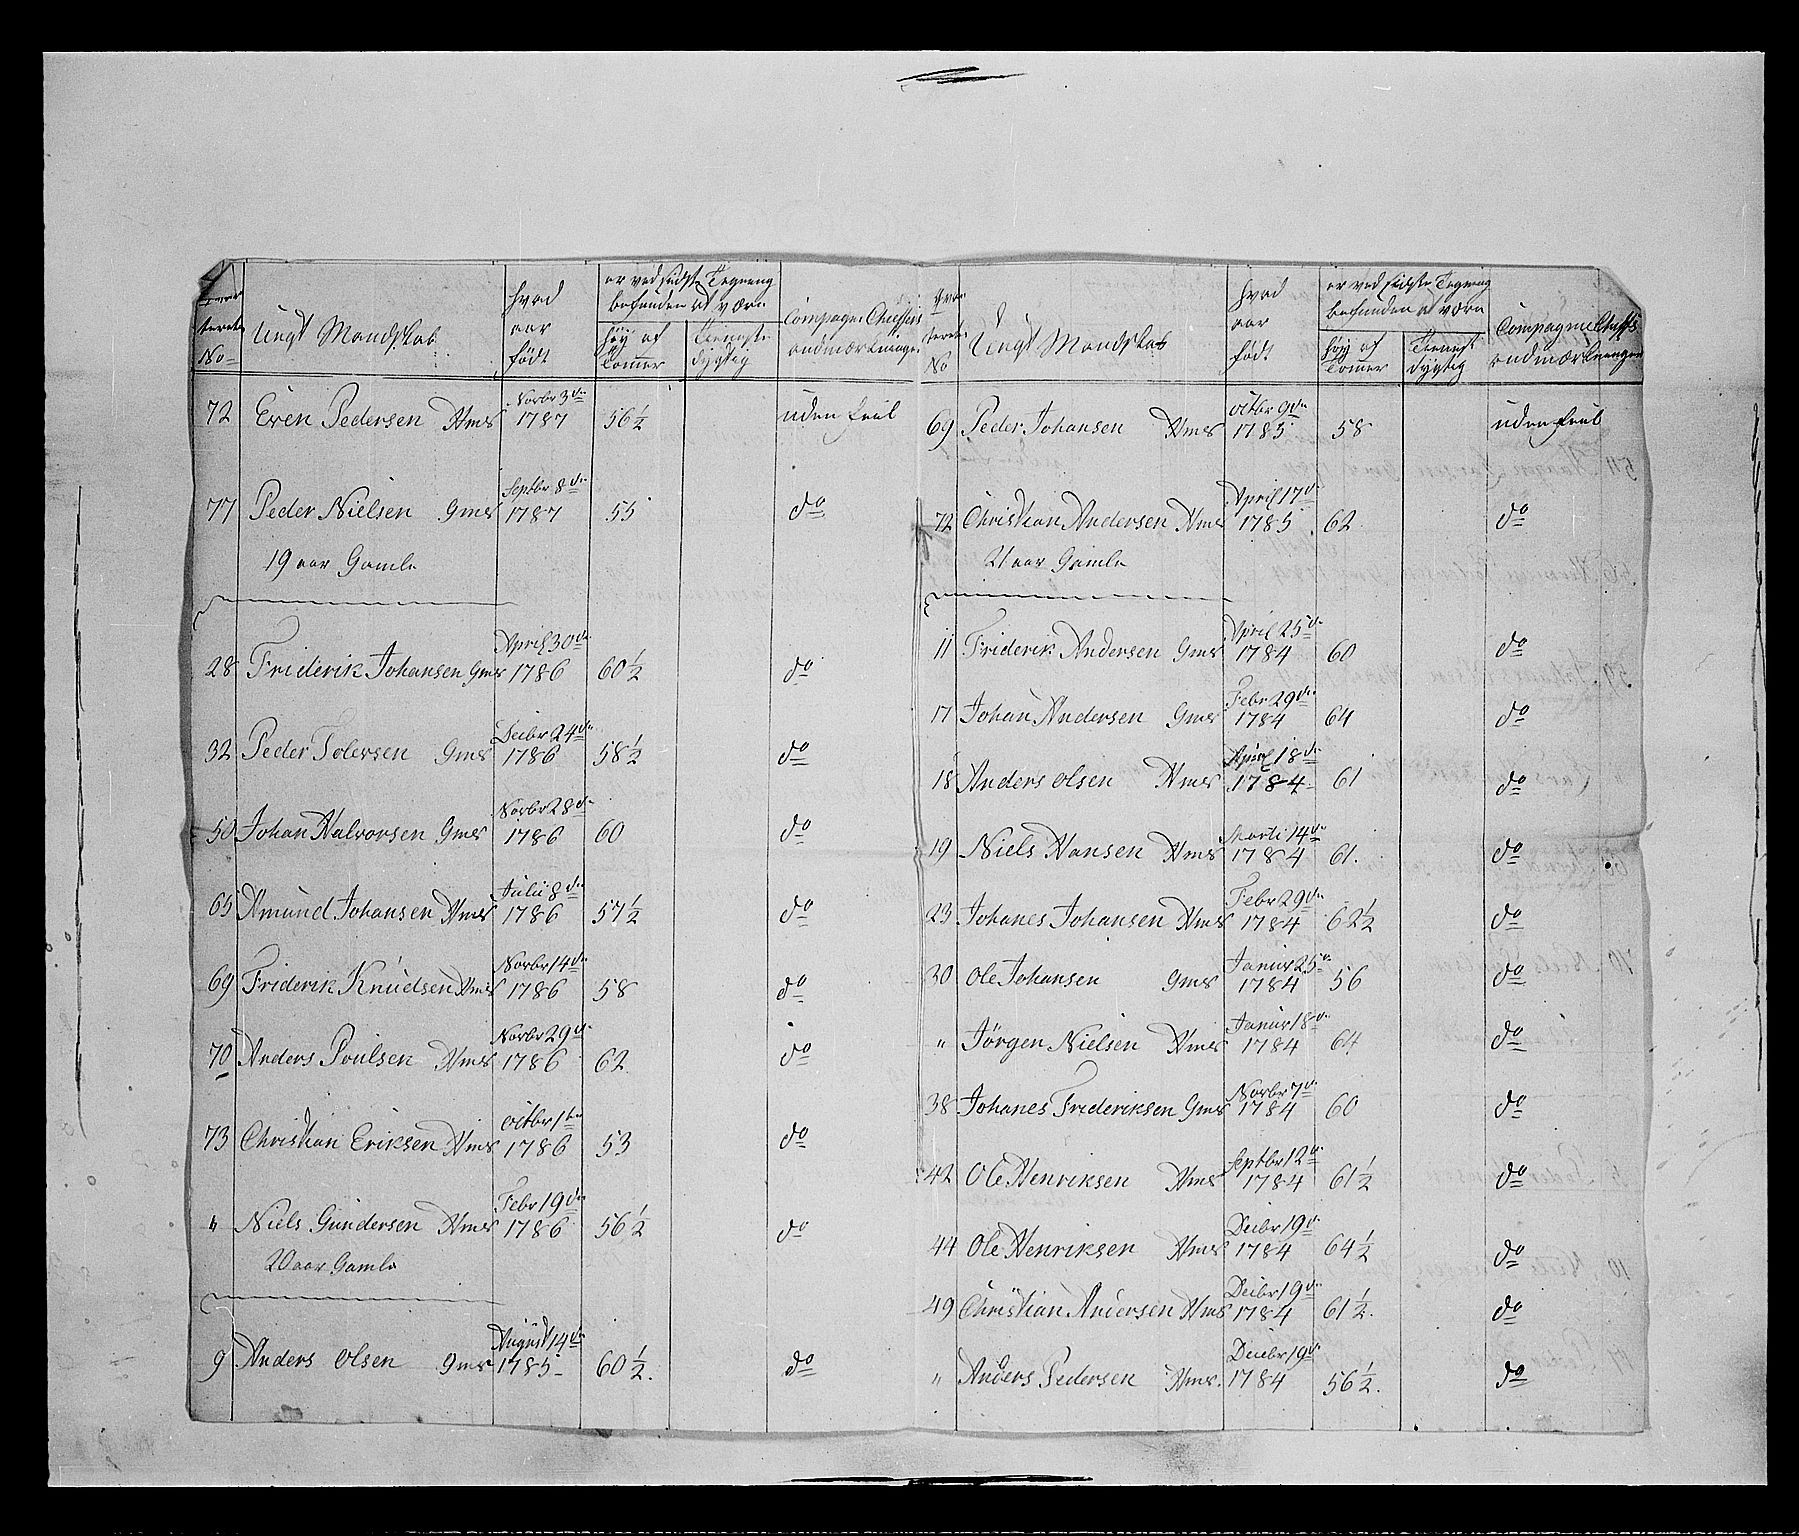 No
Ungt Mandskab
hvad
aar
født
er ved sidste Tegning
befunden at være
høy af
Tomer
Tieneste
dygtig
Compagnie Cheffens
andmærkninger
72 Even Pedersen Hms Novbr 3de 1787 56 1/2 uden feil
77 Peder Nielsen Gms Septbr 8de 1787 55 do
19 aar Gamle
28 Friderik Johansen Gms April 30de 1786 60 1/2 do
32 Peder Tolersen Gms Decbr 24de 1786 58 1/2 do
50 Johan Halvorsen Gms Novbr 28de 1786 60 do
65 Amund Johansen Hms Julii 8de 1786 57 1/2 do
69 Friderik Knudsen Hms Novbr 14de 1786 58 do
70 Anders Poulsen Hms Novbr 29de 1786 62 do
73 Christian Eriksen Hms Octbr 1te 1786 53 do
" Niels Gundersen Hms Febr 19de 1786 56 1/2 do
20 aar Gamle
9 Anders Olsen Gms August 14de 1785 60 1/2. do
No
Ungt Mandskab
hvad
aar
født
er ved sidste Tegning
befunden at være
høy af
Tomer
Tienest
dygtig
Compagnie Cheffs
andmærkninger
69 Peder Johansen Hms Octbr 9de 1785 58 uden feil
72 Christian Andersen Hms April 17de 1785 62 do
21 aar Gamle
11 Friderik Andersen Gms April 25de 1784 60 do
17 Johan Andersen Gms Febr 29de 1784 64 do
18 Anders Olsen Hms April 18de 1784 61 do
19 Niels Hansen Hms Marti 14de 1784 61. do
23 Johanes Johansen Hms Febr 29de 1784 62 1/2 do
30 Ole Johansen Gms Janur 25de 1784 56 do
" Jörgen Nielsen Hms Janur 18de 1784 64 do
38 Johanes Frideriksen Gms Novbr 7de 1784 60 do
42 Ole Henriksen Hms Septbr 12de 1784 61 1/2 do
44 Ole Henriksen Hms Decbr 19de 1784 64 1/2 do
49 Christian Andersen Hms Decbr 19de 1784 61 1/2. do
" Anders Pedersen Hms. Decebr 19de 1784 56 1/2. do